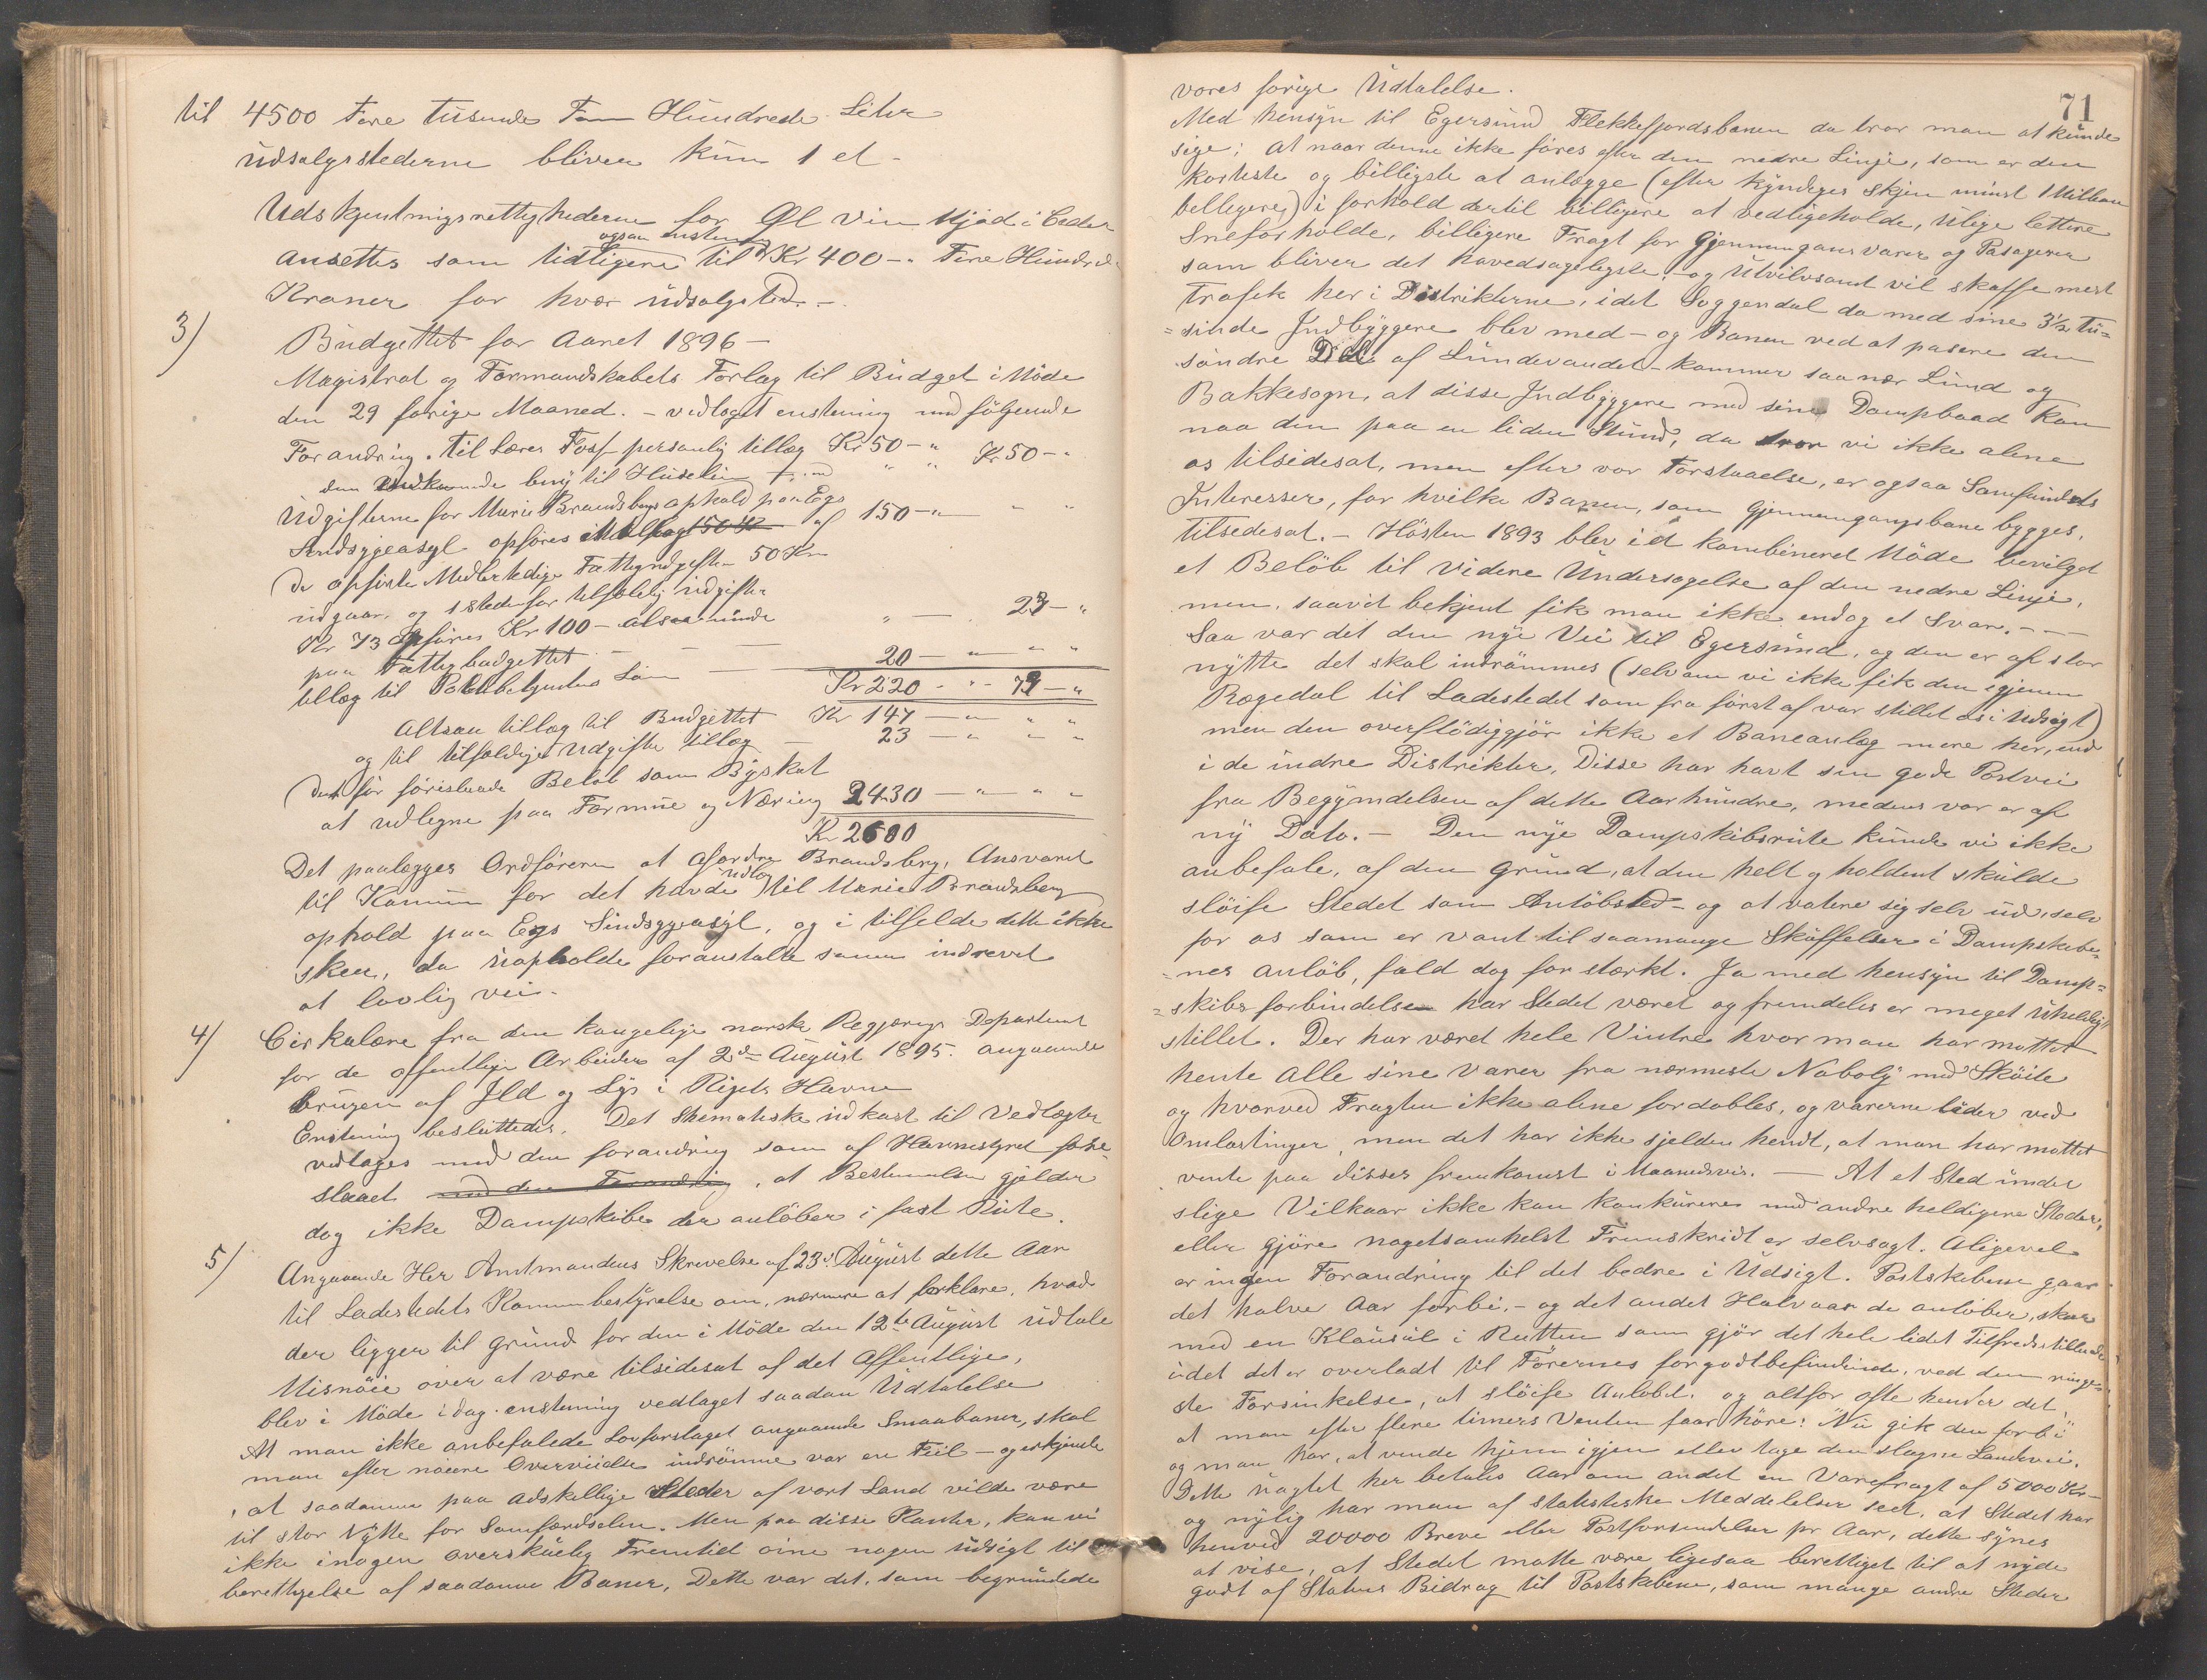 til 4500 Fire tusunde Fem Hundrede Liter
udsalgsstederne bliver kun 1 et -
Udskjenkningsrettighederne for Øl Vin Mjød i Ceder
ogsaa enstem
ansettes som tidligere til Kr 400 - Fire Hundrede
Kroner for hver udsalgsted. -
3) Budgettet for Aaret 1896 -
Magistrat og Formandskabets Forlag til Budget i Møde
den 29 forige Maaned. - vedtaget enstemig med følgende
Forandring. til Lærer Foss personlig tillæg Kr 50 - " Kr 50 - "
den benÿ til Huseleie
Udgifterne for Marie Brandsbergs ophold paa Egs
Sindsygeasyl opføres af 150 - "
De opførte Medlertidige Fattigudgifter 50 Kr
udgaar, og istedefor tilfældig udgifter
Kr 73 opføres Kr 100 - altsaa mindre " - 23 - "
paa Fattigbudgettet - - -
tillæg til Politibetjentens Løn - 20 - " - "
Kr 220 - " - 73 - "
Altsaa tillæg til Budgettet Kr 147 - " "
og til tilfældige Udgifter tillæg - 23 - " "
Det før foreslaaede Beløb som Byskat
at udlegne paa Formue og Næring 2430 - " - "
Kr 2600
Det paalægges Ordføreren at afordre Brandsberg, Ansvaret
udlæg
til Komunen for det havde til Marie Brandsberg
ophold paa Egs Sindsygeasyl, og i tilfelde dette ikke
skeer, da uopholde foranstalte samme inddrevet
at lovlig vei.
4) Cirkulære fra den kongelige norske Regjerings Departement
for de offentlige Arbeider af 2den August 1895. angaaende
brugen af Ild og Lys i Rigets Havne
Enstemig besluttedes. Det Skematiske udkast til Vedtægter
vedtages med den forandring som af Havnestyret fore-
slaaet med den Forandring, at Bestemmelsen gjelder
dog ikke Dampskibe der anløber i fast Rute.
5) Angaaende Her Amtmandens Skrivelse af 23de August dette Aar
til Ladestedets Komunebestyrelse om, nærmere at forklare, hvad
der ligger til grund for den i Møde den 12te August udtale
Misnøie over at være tilsidesat af det Offentlige,
blev i Møde idag enstemig vedtaget saadan Udtalelse
At man ikke anbefalede Lovforslaget angaaende Smaabaner, skal
man efter nøiere Overveielse indrømme var en Feil - og erkjende
, at saadanne paa adskellige Steder af vort Land vilde være
til stor Nytte for Samfærdselen. Men paa disse Kanter, kan vi
ikke inogen overskuelig Fremtid øine nogen udsigt til
berettigelse af saadanne Baner. Dette var det, som begrundede
71
vores forige Udtalelse.
Med hensyn til Egersund Flekkefjordsbanen da tror man at kunde
sige; at naar denne ikke føres efter den nedre Linje, som er den
korteste og billigste at anlægge (efter kyndiges skjøn mindst 1 Million
billigere) i forhold dertil billigere at vedligeholde, ulige lettere
Sneforholde, billigere Fragt for Gjennemgansvarer og Pasagerer
som bliver det hovedsageligste, - og Utvilvsomt vil skaffe mest
Trafik her i Distrikterne, idet Soggendal da med sine 3½ Tu-
=sinde Indbyggere blev med - og Banen ved at pasere den
søndre Del af Lundevandet - kommer saa nær Lund og
Bakkesogn, at disse Indbyggere med sine Dampbaad kan
naa den paa en liden Stund, da tror vi ikke alene
os tilsidesat, men efter vor Forstaaelse, er ogsaa Samfundets
Interesser, for hvilke Banen, som Gjennemgangsbane bygges,
tilsedesat. - Høsten 1893 blev i et kombineret Møde bevilget
et Beløb til videre Undersøgelse af den nedre Linje,
men, saavit bekjent fik man ikke endog et Svar. - -
Saa var det den nye Vei til Egersund, og den er af stor
nytte det skal indrømmes (selv om vi ikke fik den igjennem
Rægedal til Ladestedet som fra først af var stillet os i Udsigt)
men den overflødiggjør ikke et Baneanlæg mere her, end
i de indre Distrikter, Disse har havt sin gode Postvei
fra Begyndelsen af dette Aarhundre, medens vor er af
ny Dato. - Den nye Dampskibsrute kunde vi ikke
anbefale, af den grund, at den helt og holdent skulde
sløife Stedet som Anløbsted - og at votere sig selv ud, selv
for os som er vant til saamange Skuffelser i Dampskibe-
=nes anløb, fald dog for stærkt. Ja med hensyn til Damp=
=skibsforbindelsen har Stedet været og fremdeles er meget uheldigt
stillet. Der har været hele Vintre hvor man har mottet
hente Alle sine Varer fra nærmeste Naboby med Skøite
og hvorved Fragten ikke alene fordobles, og varerne lider ved
Omlastinger, men det har ikke sjelden hendt, at man har mottet
vente paa disses fremkomst i Maanedsvis. - At et Sted under
slige Vilkaar ikke kan konkurere med andre heldigere Steder,
eller gjøre nogetsomhelst Fremskridt er selvsagt. Aligevel
er ingen Forandring til det bedre i Udsigt. Postskibene gaar
det halve Aar forbi, - og det andet Halvaar de anløber, sker
med en Klausul i Rutten som gjør det hele lidet Tilfredsstillende
idet det er overladt til Førernes forgodtbefindende, ved den ringe-
ste Forsinkelse, at sløife Anløbet, og altfor ofte hender det,
at man efter flere timers Venten faar høre: "Nu gik den forbi"
og man har, at vende hjem igjen eller tage den slagne Landevei.
Dette uagtet her betales Aar om andet en Varefragt af 5000 Kr -
og nylig har man af statistiske Meddelelser seet, at Stedet har
henved 20000 Breve eller Postforsendelser pr Aar, dette synes
at vise, at Stedet motte være ligesaa berettiget til at nyde
godt af Statens Bidrag til Postskibene, som mange andre Steder